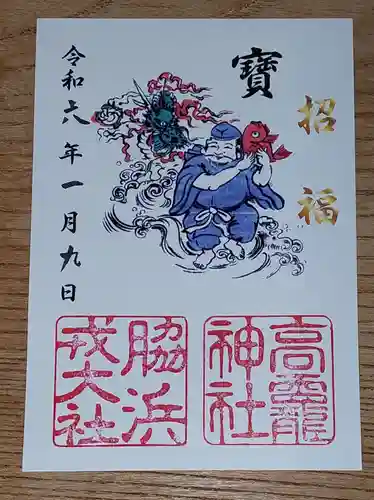 招福
寳
令和六年一月九日
高龗神社
脇浜戎大社